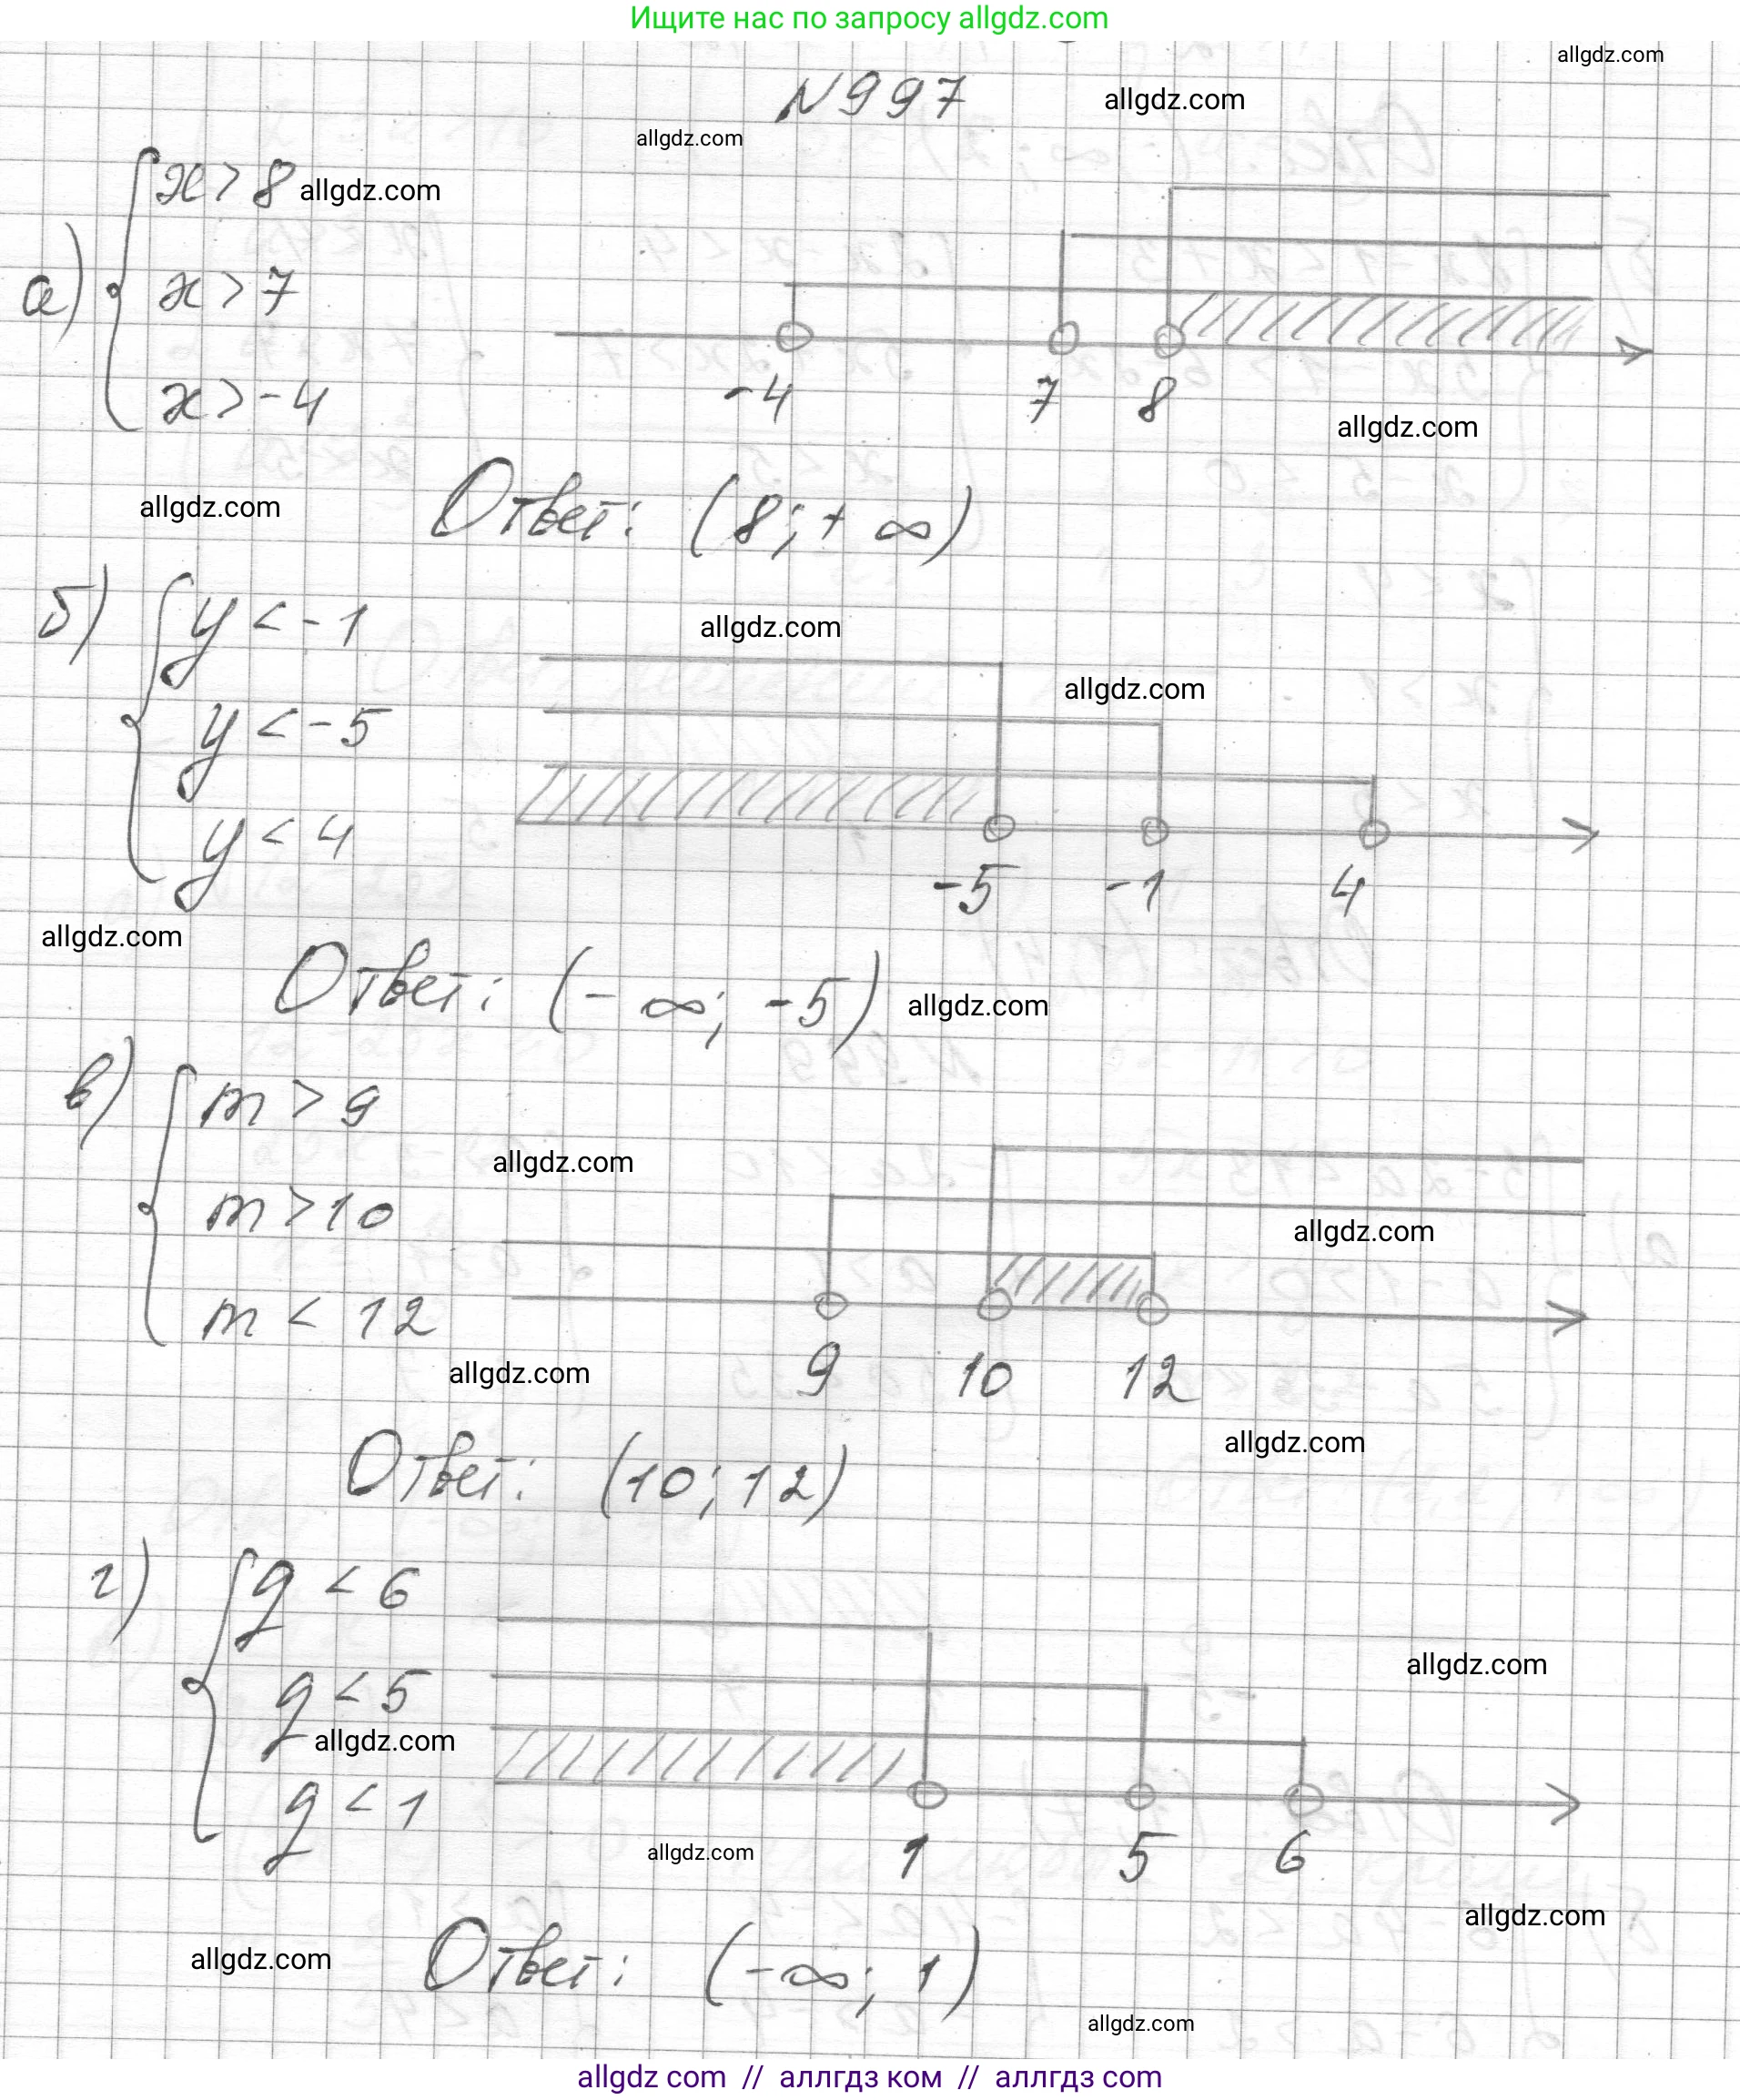 Ищите нас по запросу allgdz.com
allgdz.com
N997
allgdz.com
allgdz.com
а) { x > 8
allgdz.com
x > 7
x > -4
-4 7 8
allgdz.com
allgdz.com
Ответ: (8; + ∞)
б) { y < -1
allgdz.com
allgdz.com
y < -5
y < 4
-5 -1 4
allgdz.com
Ответ: (- ∞; -5)
allgdz.com
в) { m > 9
allgdz.com
m > 10
allgdz.com
m < 12
9 10 12
allgdz.com
allgdz.com
Ответ: (10; 12)
г) { q < 6
allgdz.com
q < 5
allgdz.com
q < 1
1 5 6
allgdz.com
allgdz.com
Ответ: (-∞; 1)
allgdz.com
allgdz.com
allgdz com // аллгдз ком // аллгдз com